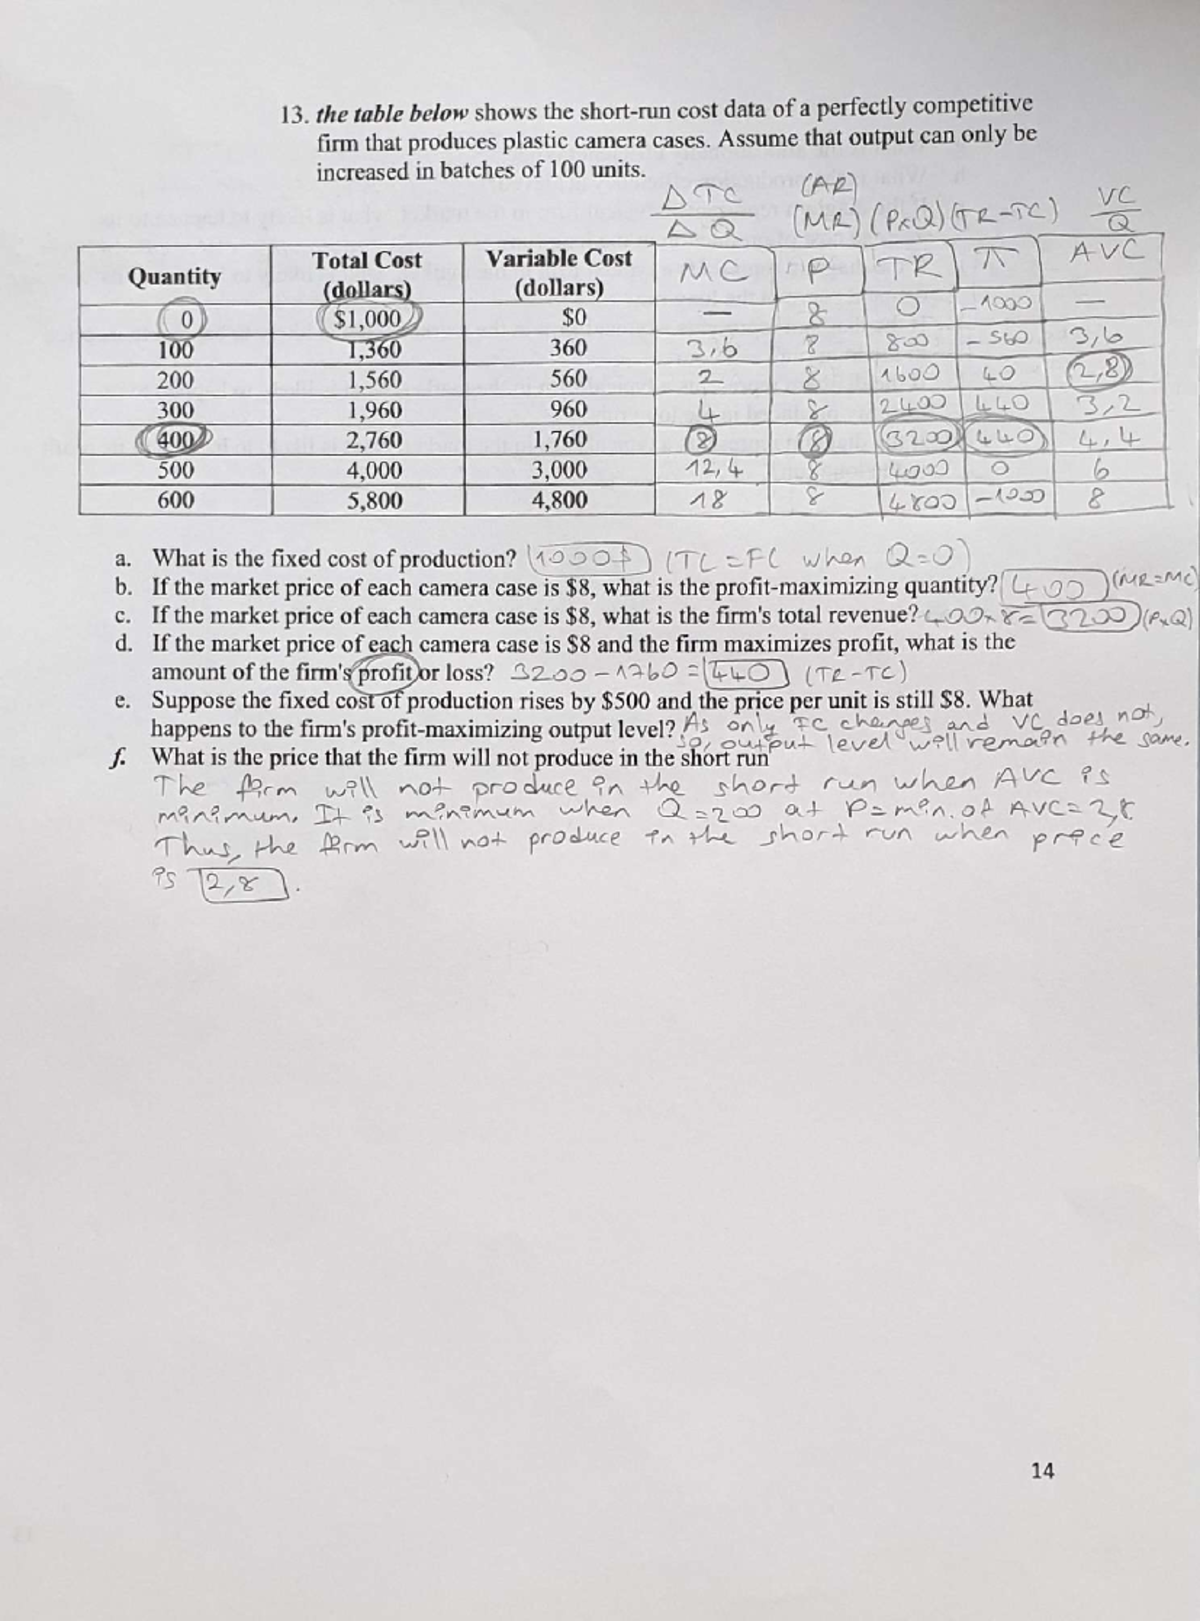 13. the table below shows the short-run cost data of a perfectly competitive
firm that produces plastic camera cases. Assume that output can only be
increased in batches of 100 units.
ΔTC (AR) VC
ΔQ (MR) (PxQ) (TR-TC) Q
Quantity Total Cost (dollars) Variable Cost (dollars) MC P TR π AVC
0 $1,000 $0 — 8 0 -1000 —
100 1,360 360 3,6 8 800 -560 3,6
200 1,560 560 2 8 1600 40 2,8
300 1,960 960 4 8 2400 440 3,2
400 2,760 1,760 8 8 3200 440 4,4
500 4,000 3,000 12,4 8 4000 0 6
600 5,800 4,800 18 8 4800 -1000 8
a. What is the fixed cost of production? 1000$ (TC=FC when Q=0)
b. If the market price of each camera case is $8, what is the profit-maximizing quantity? 400 (MR=MC)
c. If the market price of each camera case is $8, what is the firm's total revenue? 400x8=3200 (PxQ)
d. If the market price of each camera case is $8 and the firm maximizes profit, what is the
amount of the firm's profit or loss? 3200-1760=440 (TR-TC)
e. Suppose the fixed cost of production rises by $500 and the price per unit is still $8. What
happens to the firm's profit-maximizing output level? As only FC changes and VC does not,
so, output level will remain the same.
f. What is the price that the firm will not produce in the short run
The firm will not produce in the short run when AVC is
minimum. It is minimum when Q=200 at P=min. of AVC=2,8.
Thus, the firm will not produce in the short run when price
is 2,8.
14